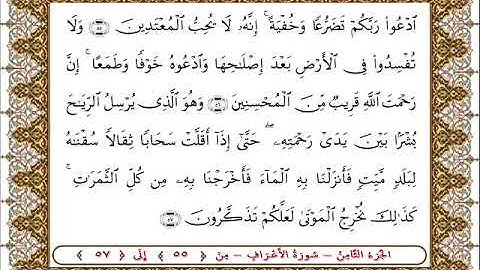 ٱدْعُوا۟ رَبَّكُمْ تَضَرُّعًا وَخُفْيَةً ۚ إِنَّهُۥ لَا يُحِبُّ ٱلْمُعْتَدِينَ ﴿٥٥﴾ وَلَا
تُفْسِدُوا۟ فِى ٱلْأَرْضِ بَعْدَ إِصْلَـٰحِهَا وَٱدْعُوهُ خَوْفًا وَطَمَعًا ۚ إِنَّ
رَحْمَتَ ٱللَّهِ قَرِيبٌ مِّنَ ٱلْمُحْسِنِينَ ﴿٥٦﴾ وَهُوَ ٱلَّذِى يُرْسِلُ ٱلرِّيَـٰحَ
بُشْرًۢا بَيْنَ يَدَىْ رَحْمَتِهِۦ ۖ حَتَّىٰٓ إِذَآ أَقَلَّتْ سَحَابًا ثِقَالًا سُقْنَـٰهُ
لِبَلَدٍ مَّيِّتٍ فَأَنزَلْنَا بِهِ ٱلْمَآءَ فَأَخْرَجْنَا بِهِۦ مِن كُلِّ ٱلثَّمَرَٰتِ ۚ
كَذَٰلِكَ نُخْرِجُ ٱلْمَوْتَىٰ لَعَلَّكُمْ تَذَكَّرُونَ ﴿٥٧﴾
الجزء الثامن - سورة الأعراف - من ﴿ ٥٥ ﴾ إلى ﴿ ٥٧ ﴾